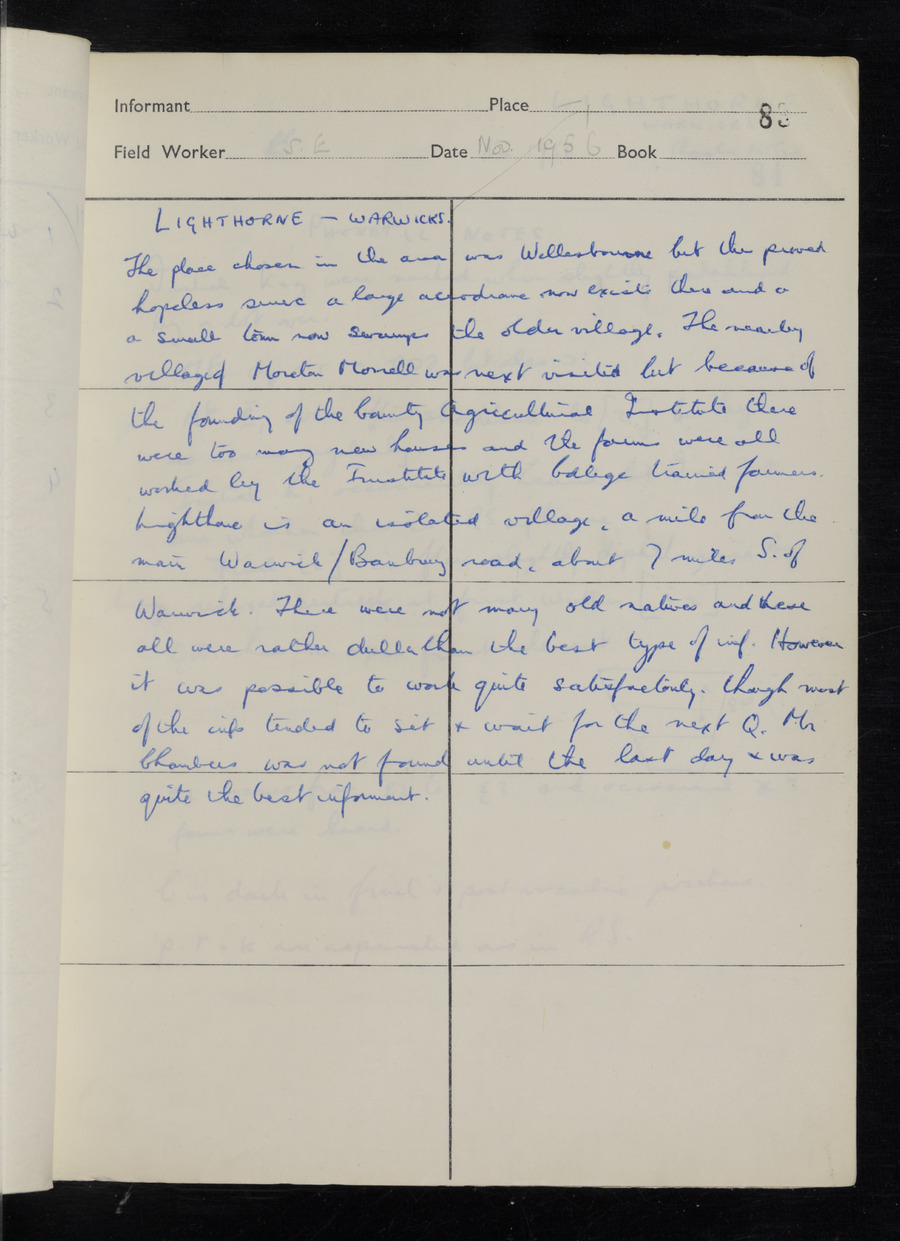 Informant Place 83
Field Worker S. E Date Nov. 1956 Book
LIGHTHORNE – WARWICKS.
The place chosen in the area was Wellesbourne but this proved
hopeless since a large aerodrome now exists there and a
a small town now swamps the older village. The nearby
village of Moreton Morrell was next visited but because of
the founding of the County Agricultural Institute there
were too many new houses and the farms were all
worked by the Institute with College trained farmers.
Lighthorne is an isolated village, a mile from the
main Warwick/Banbury road, about 7 miles S. of
Warwick. There were not many old natives and these
all were rather duller than the best type of inf. However
it was possible to work quite satisfactorily. though most
of the infs tended to sit & wait for the next Q. Mr
Chambers was not found until the last day & was
quite the best informant.